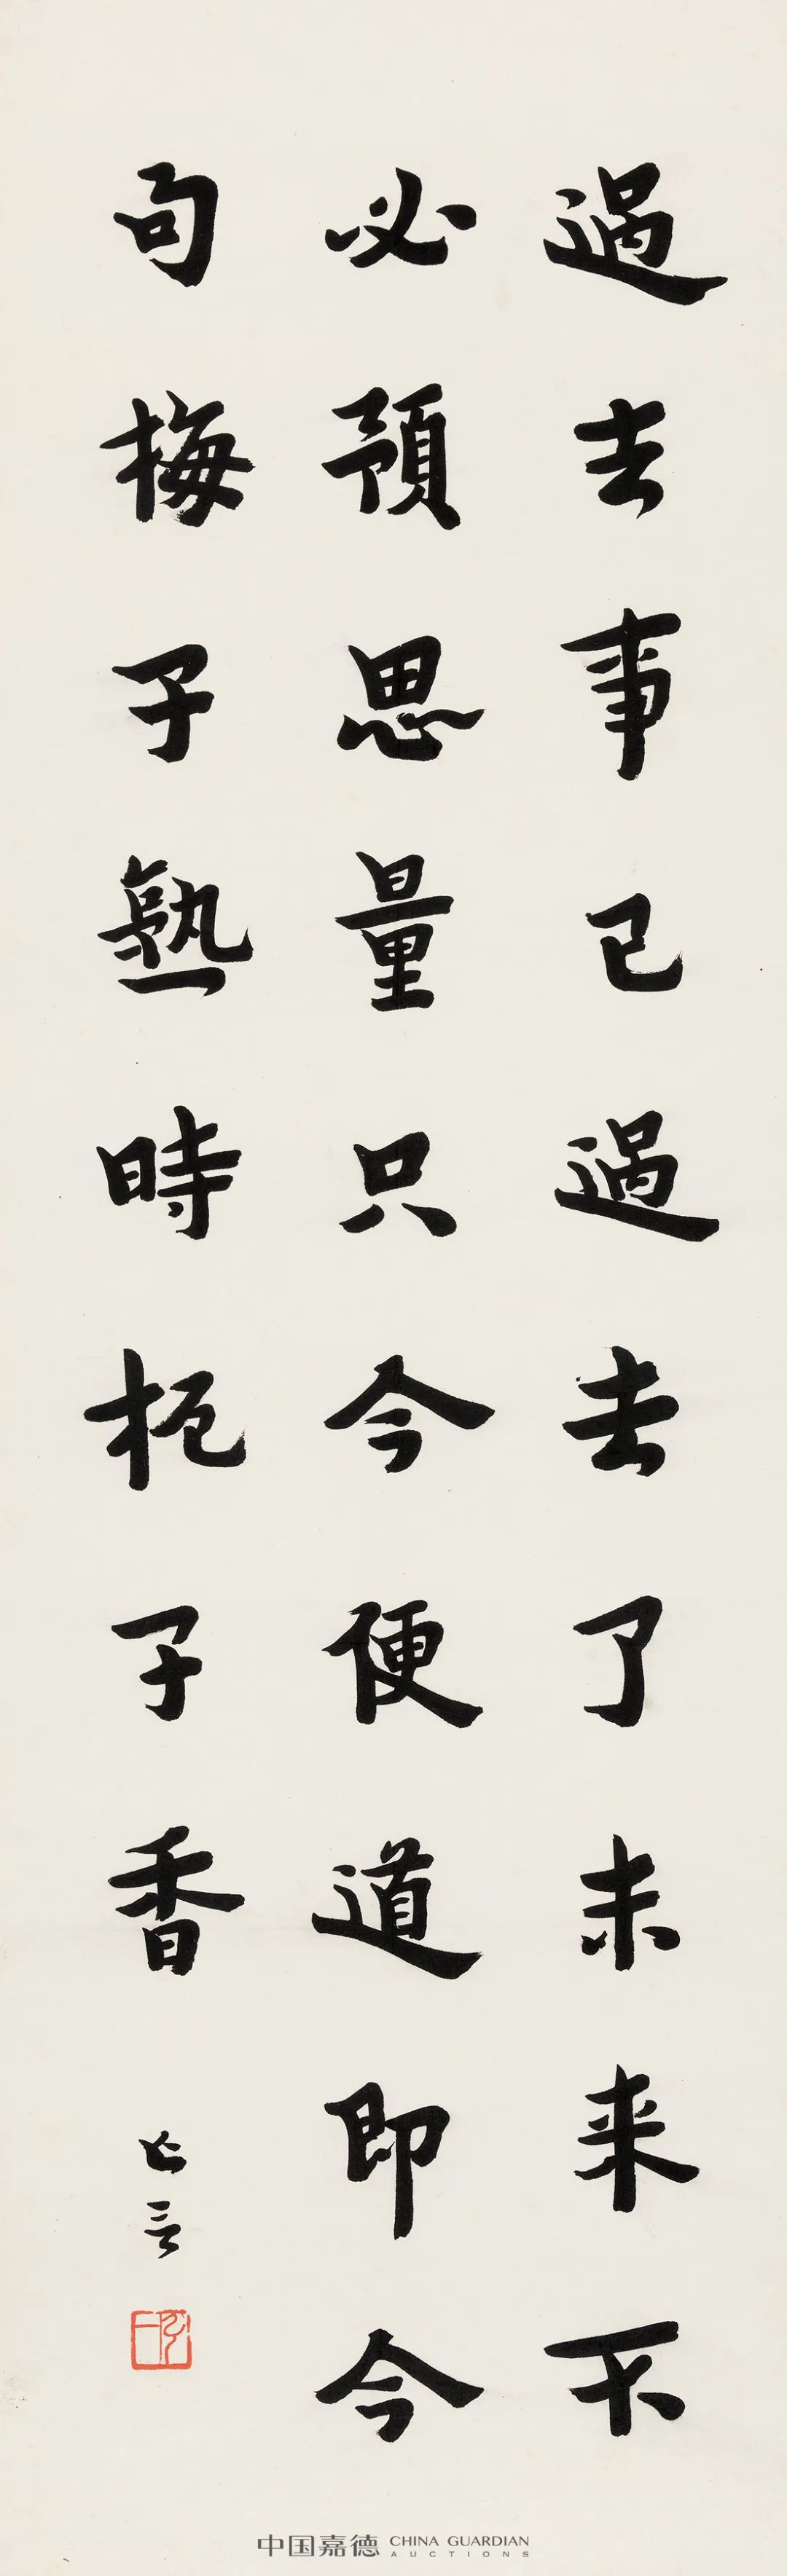 過去事已過去了未来不
必預思量只今便道即今
句梅子熟時梔子香
弘一
中国嘉德 CHINA GUARDIAN
AUCTIONS